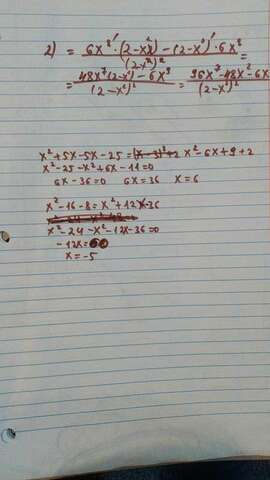 2) = 6x⁸' · (2-x²) - (2-x²)' · 6x⁸ / (2-x²)² =
= 48x⁷(2-x²) - 6x⁹ / (2-x²)² = 96x⁷-48x²-6x / (2-x²)²
x²+5x-5x-25 = x²-6x+9+2
x²-25-x²+6x-11=0
6x-36=0 6x=36 x=6
x²-16-8=x²+12x+36
x²-24-x²-12x-36=0
-12x=60
x=-5